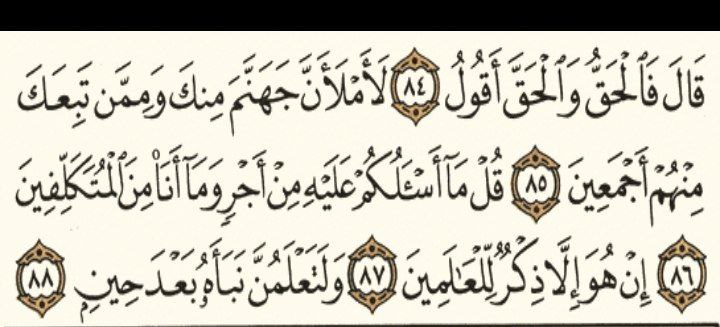 قَالَ فَٱلْحَقُّ وَٱلْحَقَّ أَقُولُ ٨٤ لَأَمْلَأَنَّ جَهَنَّمَ مِنكَ وَمِمَّن تَبِعَكَ
مِنْهُمْ أَجْمَعِينَ ٨٥ قُلْ مَآ أَسْـَٔلُكُمْ عَلَيْهِ مِنْ أَجْرٍ وَمَآ أَنَا۠ مِنَ ٱلْمُتَكَلِّفِينَ
٨٦ إِنْ هُوَ إِلَّا ذِكْرٌ لِّلْعَـٰلَمِينَ ٨٧ وَلَتَعْلَمُنَّ نَبَأَهُۥ بَعْدَ حِينٍۭ ٨٨